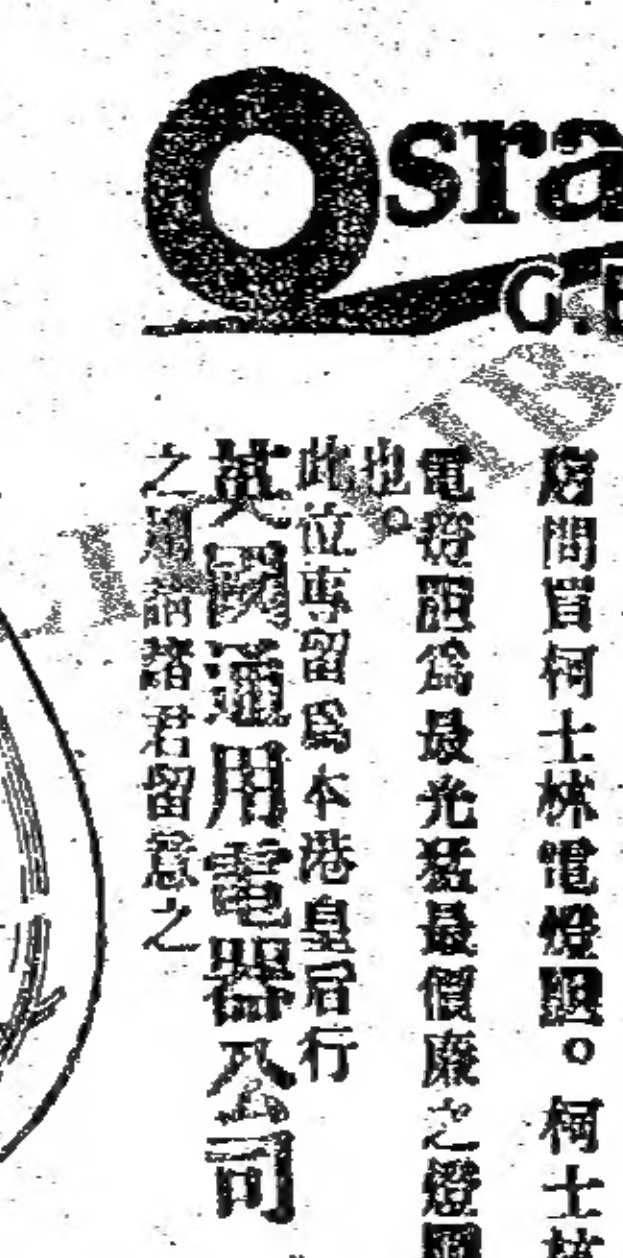 Osra
G.E
房間買柯士林電燈胆。柯士林
電燈胆為最光猛最價廉之燈胆
也。
此位專留爲本港皇后行
英國通用電器公司
之用請諸君留意之